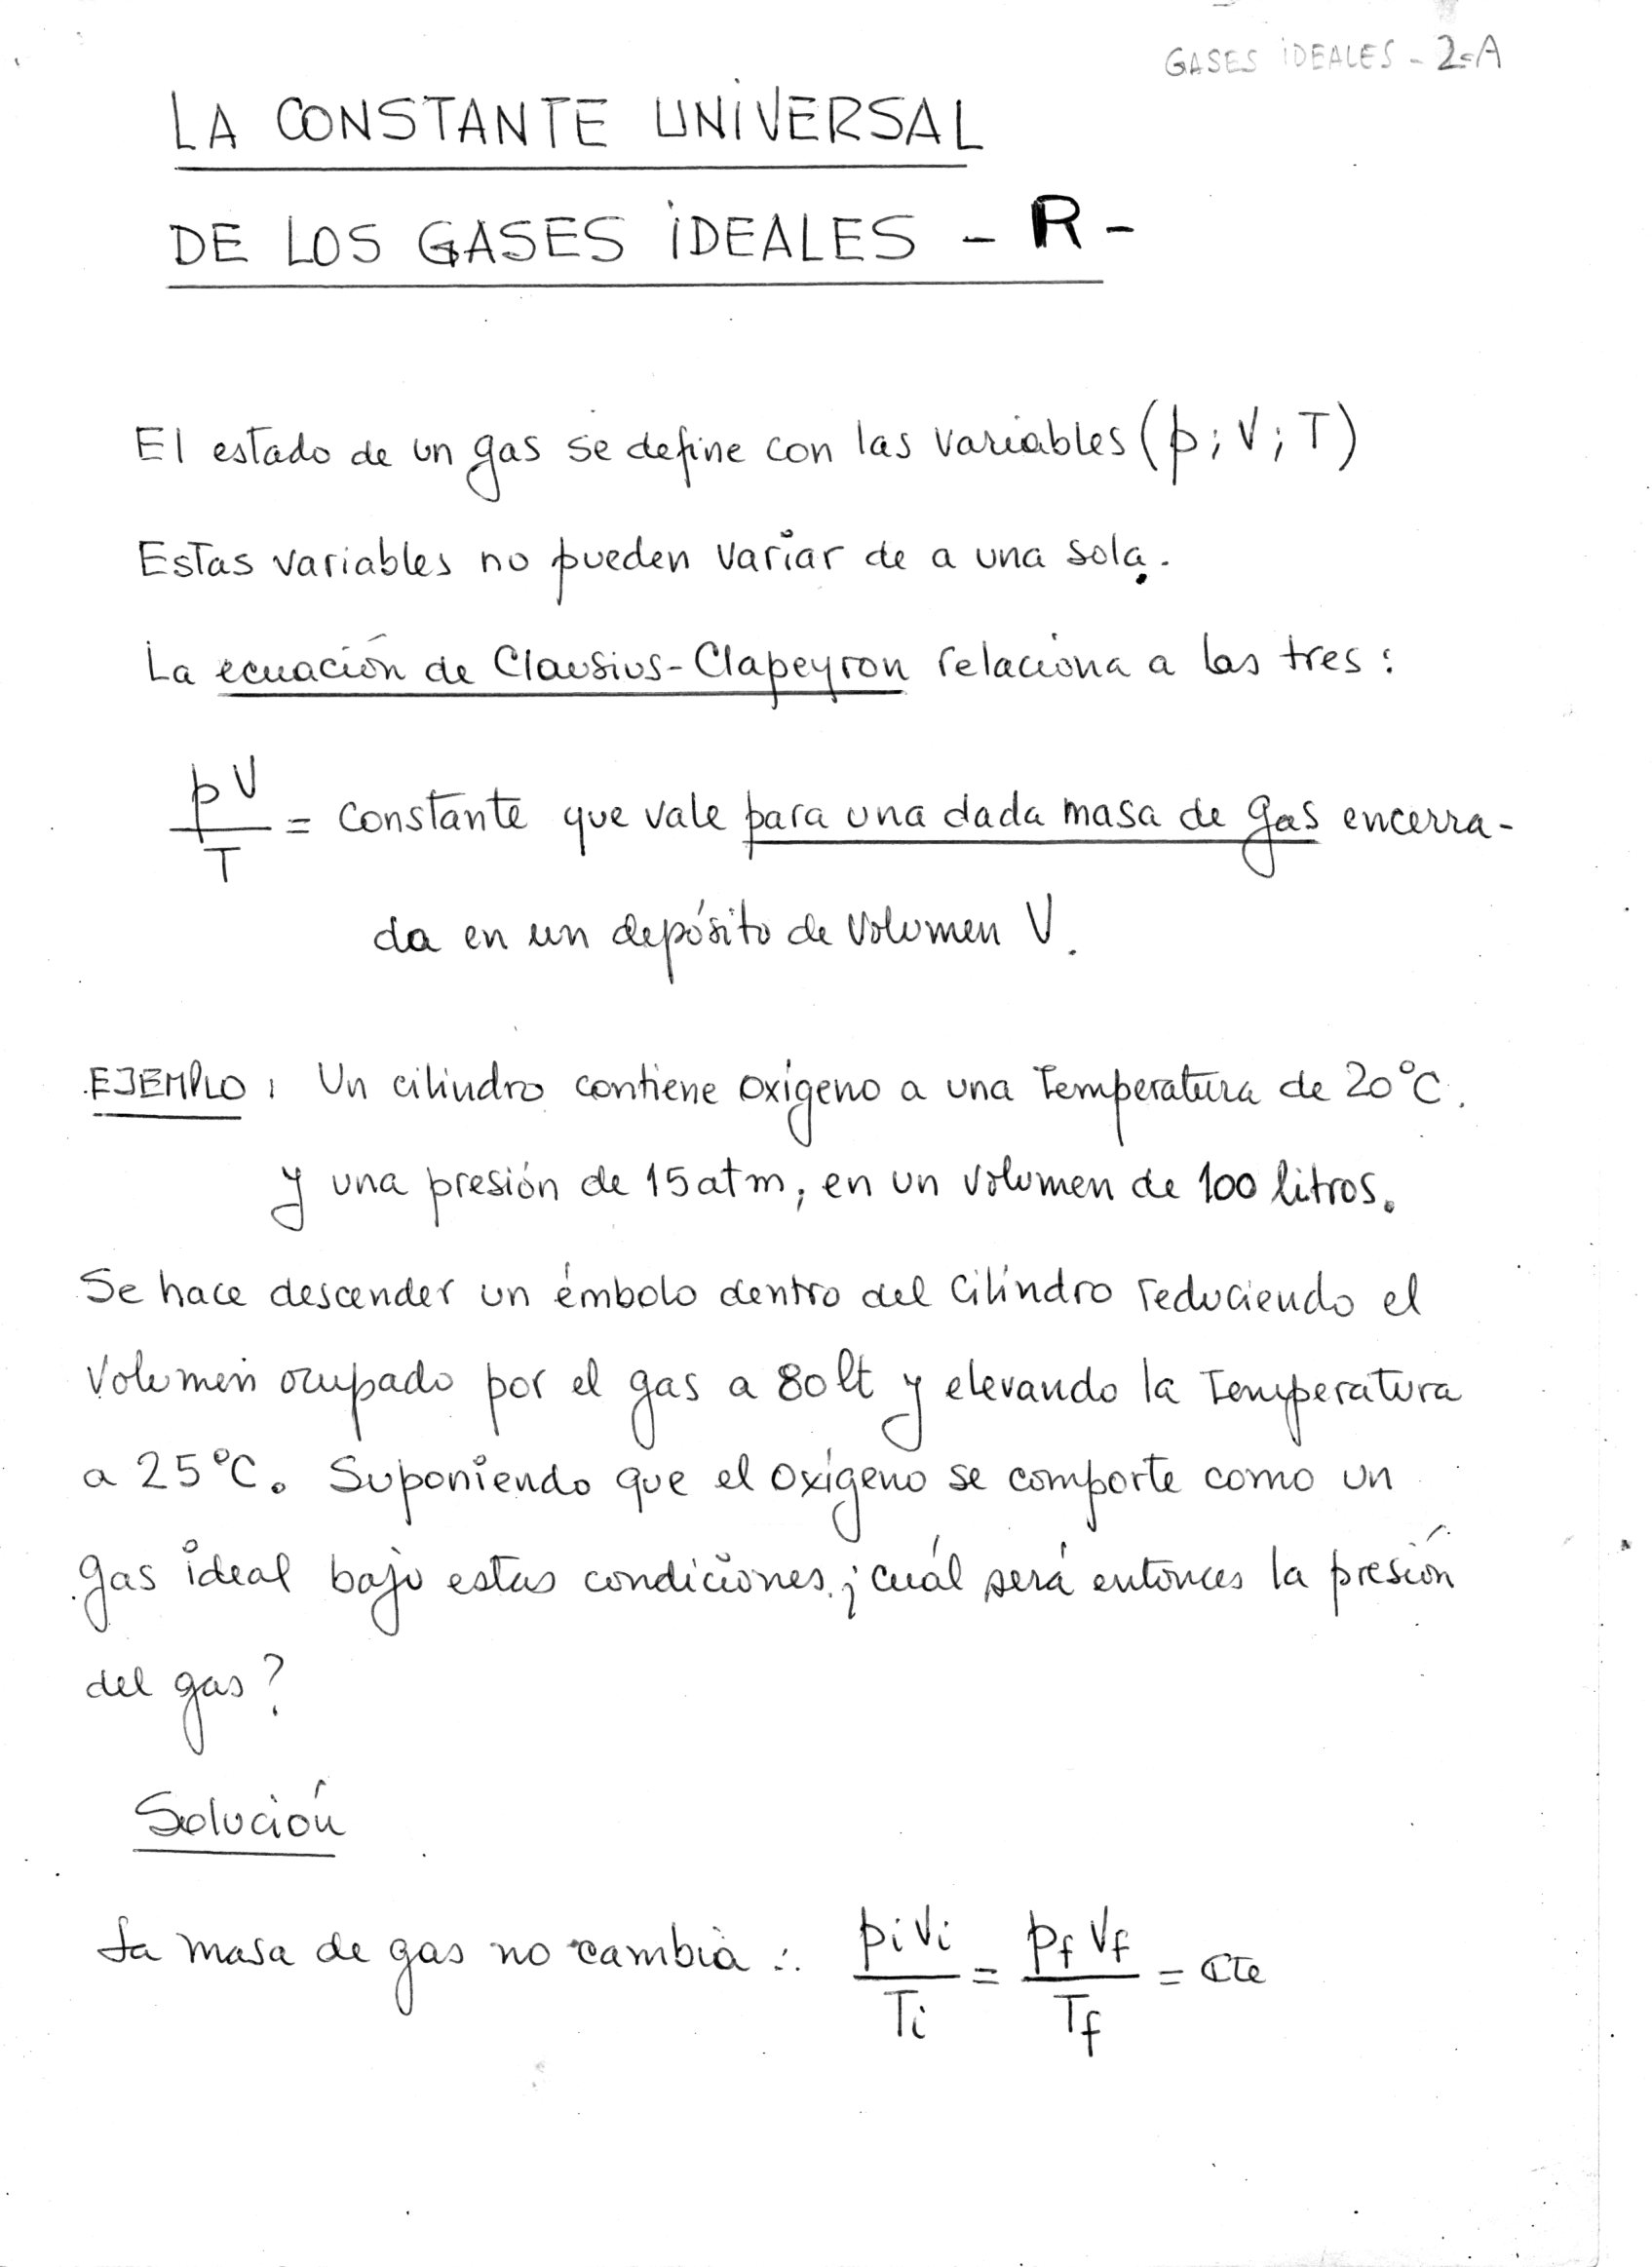 GASES IDEALES - 2-A
LA CONSTANTE UNIVERSAL
DE LOS GASES IDEALES - R -
El estado de un gas se define con las variables (p; V; T)
Estas variables no pueden variar de a una sola.
La ecuación de Clausius-Clapeyron relaciona a las tres:
pV/T = constante que vale para una dada masa de gas encerra-
da en un depósito de volumen V.
EJEMPLO: Un cilindro contiene oxígeno a una temperatura de 20°C.
y una presión de 15 atm, en un volumen de 100 litros.
Se hace descender un émbolo dentro del cilindro reduciendo el
volumen ocupado por el gas a 80 lt y elevando la temperatura
a 25°C. Suponiendo que el oxígeno se comporte como un
gas ideal bajo estas condiciones ¿cuál será entonces la presión
del gas?
Solución
La masa de gas no cambia ∴ piVi/Ti = pfVf/Tf = cte